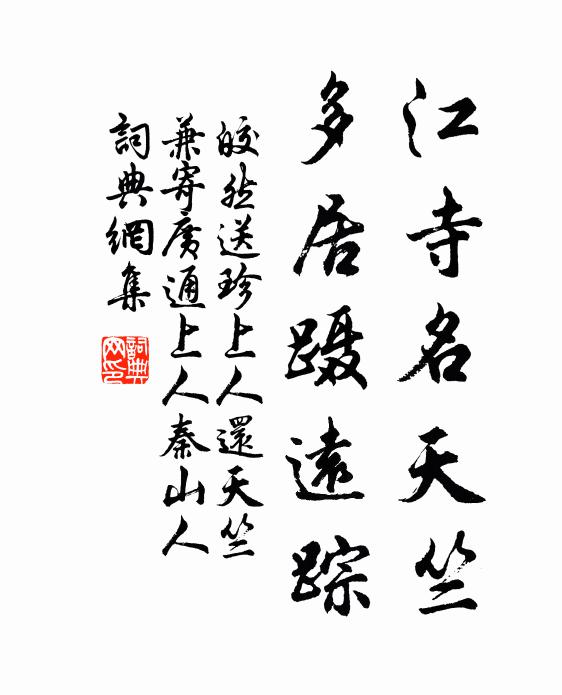 江寺名天竺
多居蹑遠踪
皎然送珍上人還天竺
兼寄廣通上人秦山人
詞典網集
詞典网印